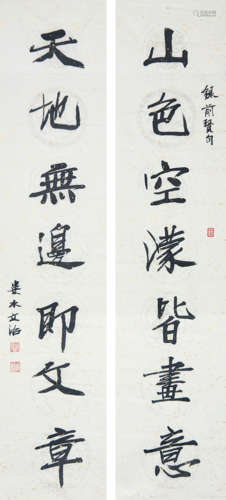 山色空濛皆畫意
錄前賢句
天地無邊即文章
婁水文治